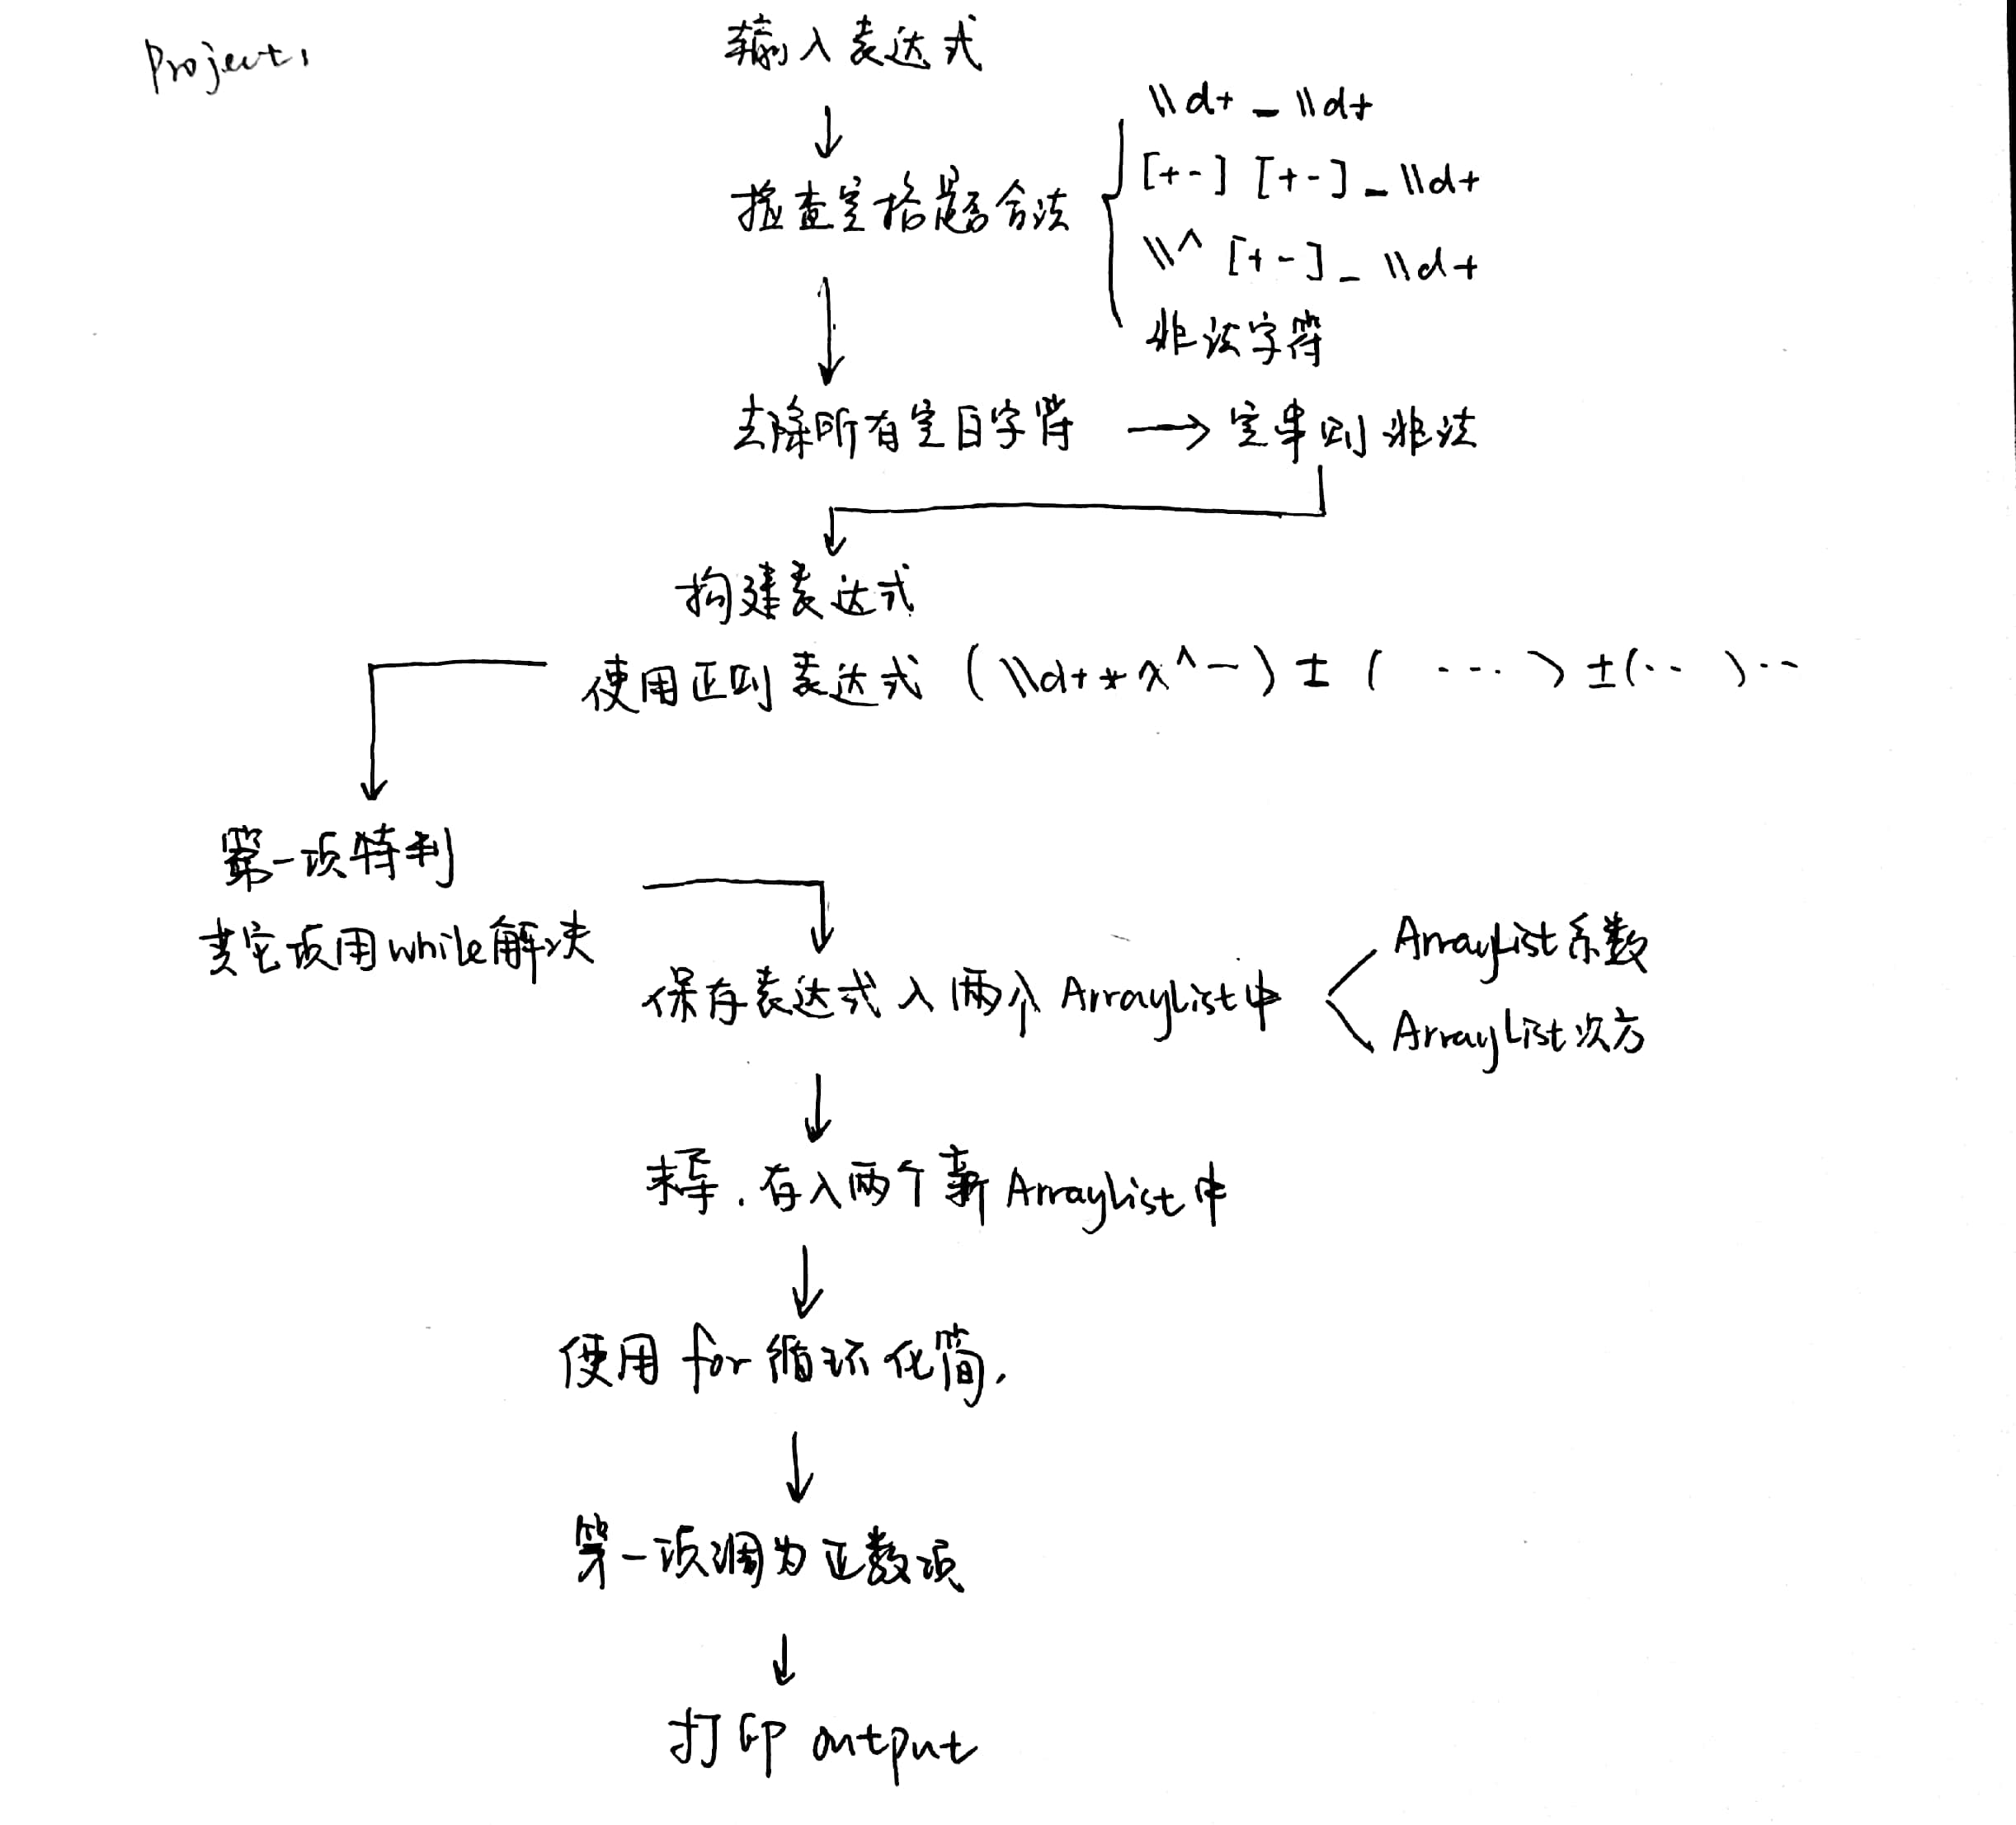 Project1
输入表达式
\\d+ _ \\d+
[+-] [+-] _ \\d+
\\^ [+-] _ \\d+
非法字符
检查空格是否合法
去除所有空白字符 → 空串则非法
构建表达式
使用正则表达式 (\\d+*x^-) ± ( ... ) ± (.. ) ..
第一项特判
其它项用while解决
保存表达式入两个ArrayList中
ArrayList系数
ArrayList次方
求导.存入两个新ArrayList中
使用for循环化简.
第一项调为正数项
打印output